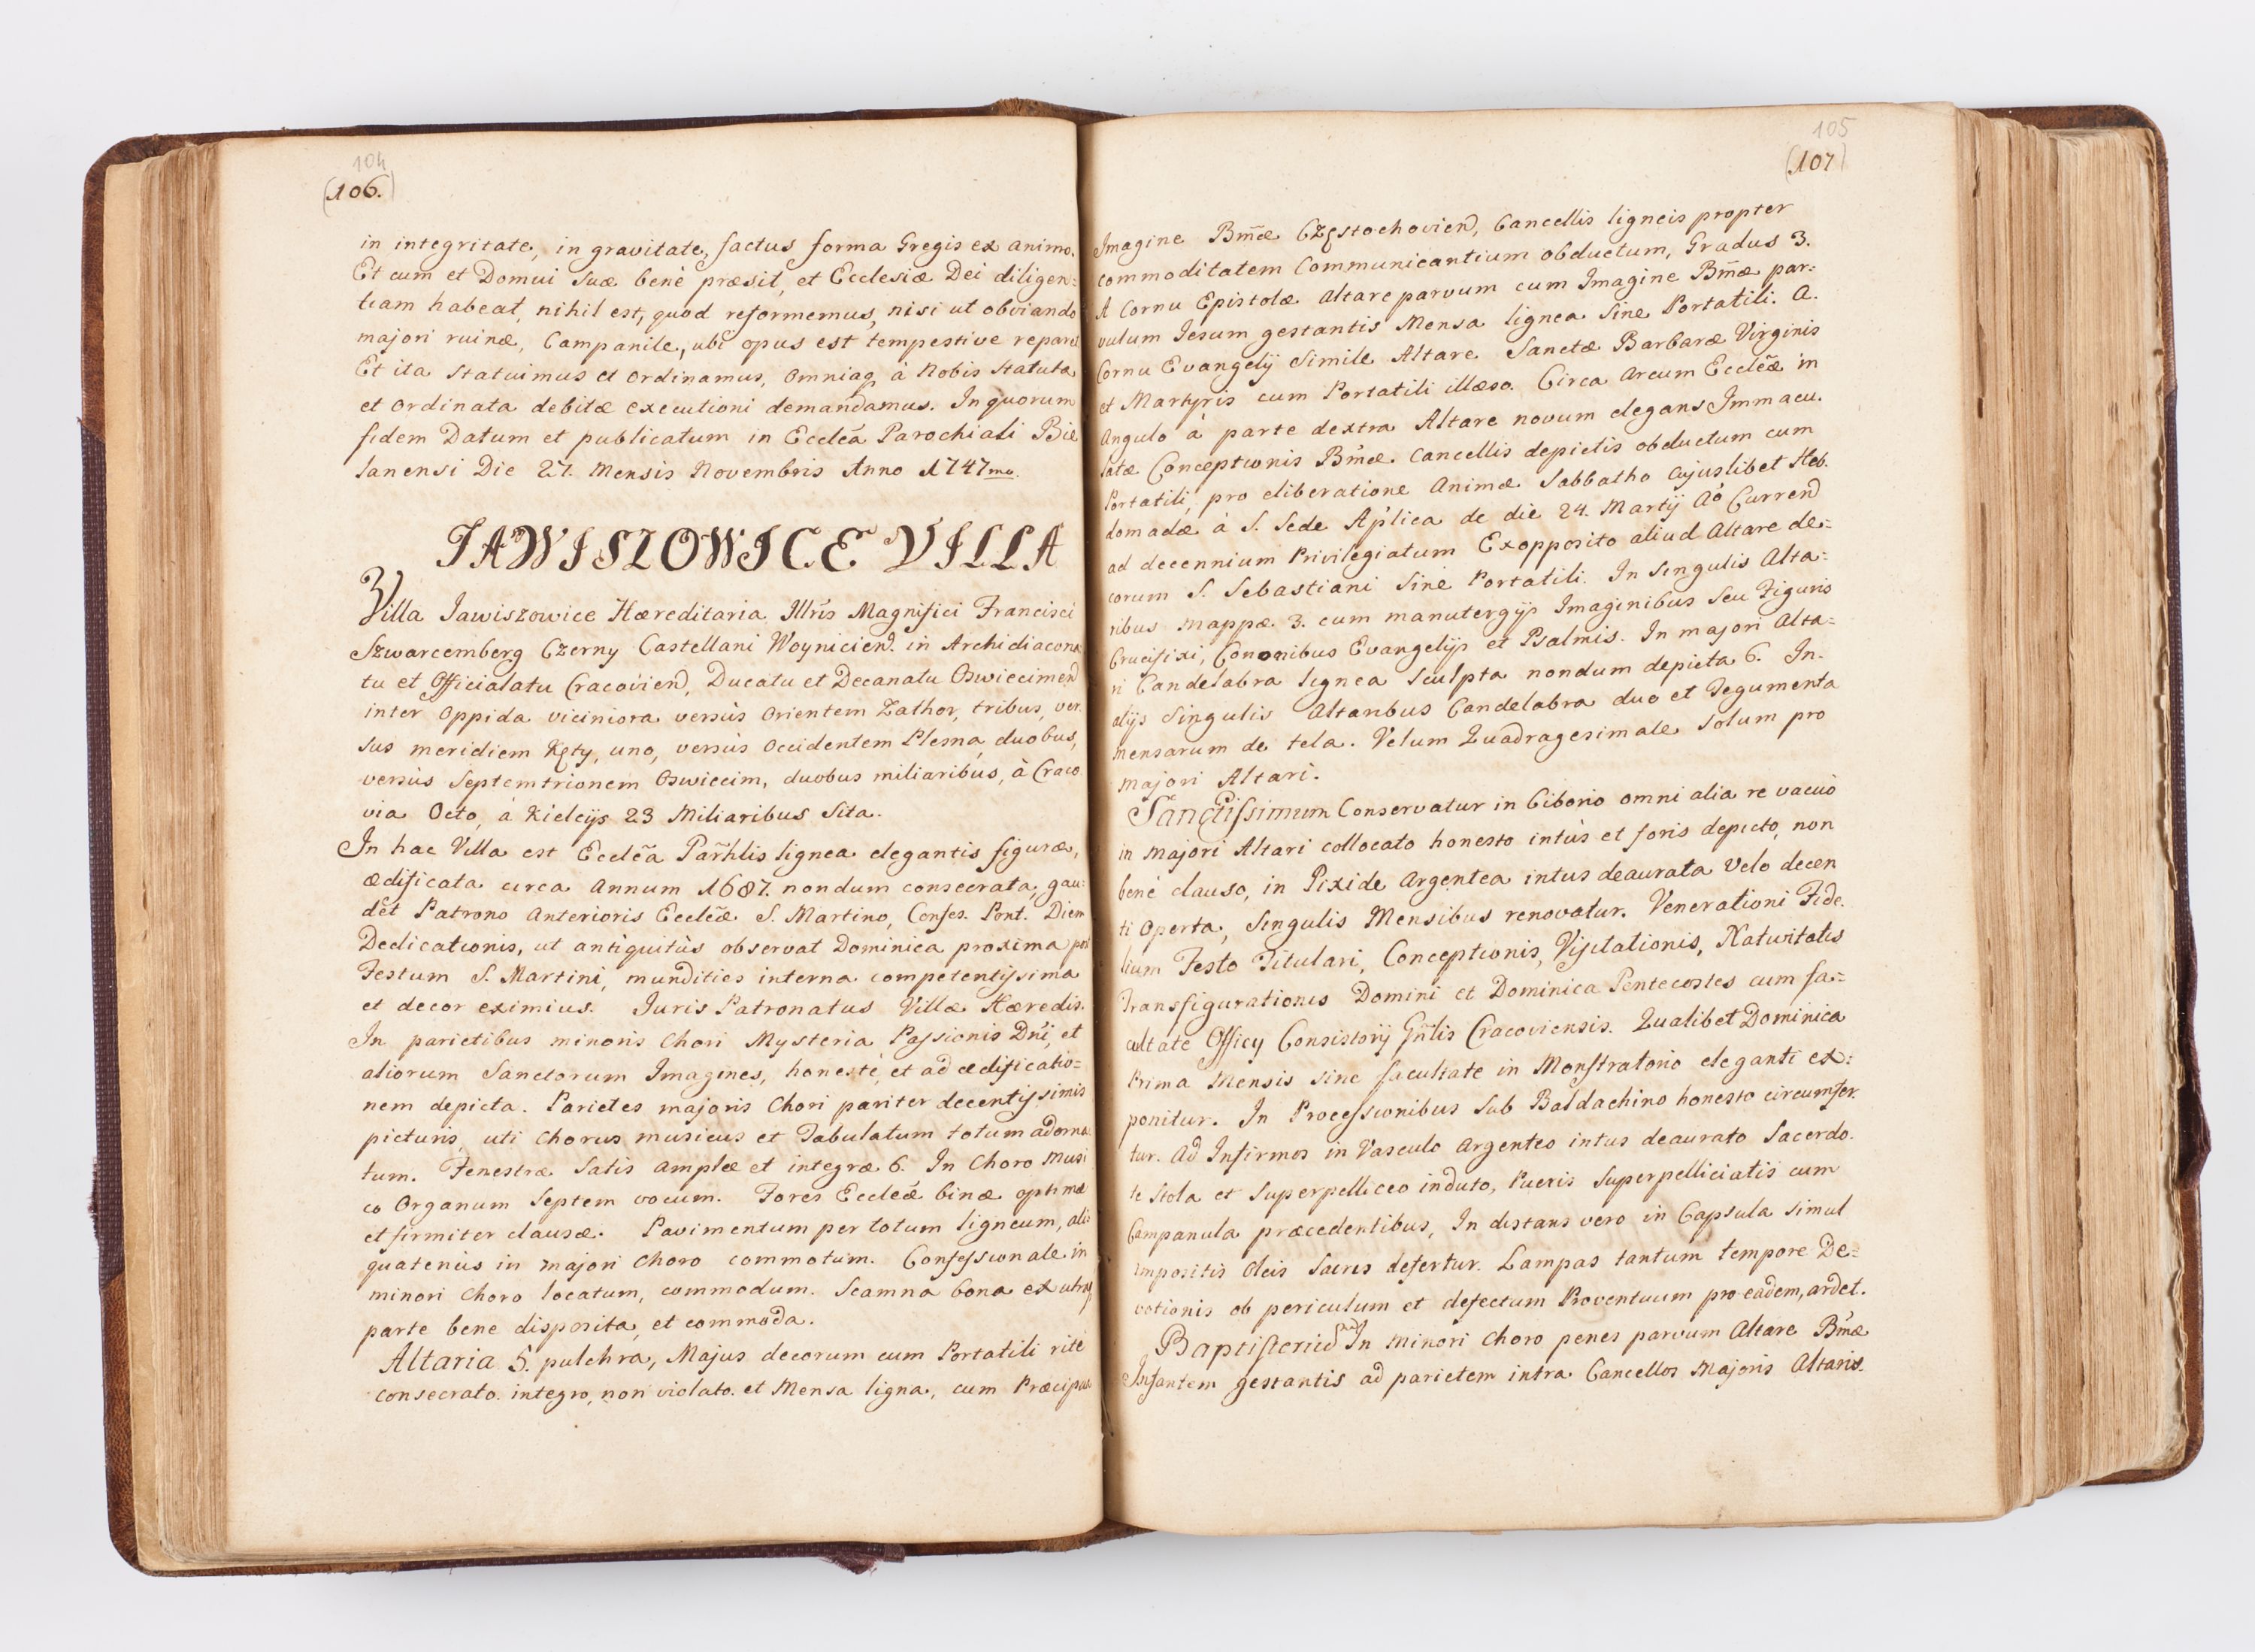 104
(106.)
in integritate, in gravitate, factus forma Gregis ex animo.
Et cum et Domui Suæ benè præsit, et Ecclesiæ Dei diligen=
tiam habeat, nihil est, quod reformemus, nisi ut obviando
majori ruinæ, Campanile, ubi opus est tempestive reparet
Et ita statuimus et ordinamus, omniaq à Nobis statuta
et ordinata debitæ executioni demandamus. In quorum
fidem Datum et publicatum in Eccleã Parochiali Bie
lanensi Die 27. Mensis Novembris Anno 1747mo.
JAWISZOWICE VILLA
Villa Jawiszowice Hæreditaria Illris Magnifici Francisci
Szwarcemberg Czerny Castellani Woynicien. in Archidiacona
tu et Officialatu Cracovien, Ducatu et Decanatu Oswiecimen
inter Oppida viciniora versùs Orientem Zathor, tribus, ver
sus meridiem Kęty, uno, versùs Occidentem Plesna, duobus,
versùs Septemtrionem Oswiecim, duobus miliaribus, à Craco
via Octo, à Kielcijs 23 Miliaribus Sita.
In hac Villa est Ecclẽa Par̃hlis lignea elegantis figuræ,
ædificata circa Annum 1687. nondum consecrata, gau=
det Patrono Anterioris Ecclẽæ S. Martino, Confes. Pont. Diem
Dedicationis, ut antiquitùs observat Dominica proxima post
Festum S. Martini, mundities interna competentissima
et decor eximius. Juris Patronatus Villæ Hæredis.
In parietibus minoris Chori Mysteria Passionis Dñi, et
aliorum Sanctorum Imagines, honestè, et ad ædificatio=
nem depicta. Parietes majoris Chori pariter decentissimis
picturis, uti Chorus musicus et Tabulatum totum adorna
tum. Fenestræ Satis amplæ et integræ 6. In Choro Musi
co Organum Septem vocum. Fores Eccleæ binæ optimæ
et firmiter clausæ. Pavimentum per totum ligneum, ali
quatenùs in majori Choro commotum. Confessionale in
minori Choro locatum, commodum. Scamna bona ex utraq
parte bene disposita, et commoda.
Altaria 5. pulchra, Majus decorum cum Portatili ritè
consecrato. integro, non violato. et Mensa ligna, cum Præcipua
105
(107)
Imagine Bm̃æ Częstochovien, Cancellis ligneis propter
commoditatem Communicantium obductum, Gradus 3.
A Cornu Epistolæ Altare parvum cum Imagine Bm̃æ par=
vulum Jesum gestantis Mensa lignea Sine Portatili. A.
Cornu Evangelij Simile Altare Sanctæ Barbaræ Virginis
et Martyris cum Portatili illæso. Circa Arcum Ecclẽæ in
Angulo à parte dextra Altare novum elegans Immacu.
latæ Conceptionis Bmæ. Cancellis depictis obductum cum
Portatili, pro eliberatione Animæ Sabbatho cujuslibet Heb.
domadæ à S. Sede Aplica de die 24. Martij Aõ Curren
ad decennium Privilegiatum Exopposito aliud Altare de=
corum S. Sebastiani Sinè Portatili. In Singulis Alta=
ribus Mappæ. 3. cum manutergijs Imaginibus Seu Figuris
Crucifixi, Cononibus Evangelijs et Psalmis. In majori Alta=
ri Candelabra lignea Sculpta nondum depicta 6. In.
alijs Singulis Altaribus Candelabra duo et Tegumenta
mensarum de tela. Velum Quadragesimale Solum pro
majori Altari.
Sanctissimum Conservatur in Ciborio omni alia re vacuo
in Majori Altari collocato honesto intùs et foris depicto, non
benè clauso, in Pixide Argentea intus deaurata Velo decen
ti Operta, Singulis Mensibus renovatur. Venerationi Fide.
lium Festo Titulari, Conceptionis, Visitationis, Nativitatis
Transfigurationis Domini et Dominica Pentecostes cum fa=
cultate Officij Consistorij Gñlis Cracoviensis. Qualibet Dominica
Prima Mensis sine facultate in Monstratorio eleganti ex=
ponitur. In Processionibus Sub Baldachino honesto circumfer.
tur. Ad Infirmos in Vasculo Argenteo intus deaurato Sacerdo.
te Stola et Superpelliceo induto, Pueris Superpelliciatis cum
Campanula præcedentibus, In distans vero in Capsula simul
impositis Oleis Sacris defertur. Lampas tantum tempore De=
votionis ob periculum et defectum Proventuum pro eadem, ardet.
Baptisteriũ In minori Choro penes parvum Altare Bmæ
Infantem gestantis ad parietem intra Cancellos Majoris Altaris.